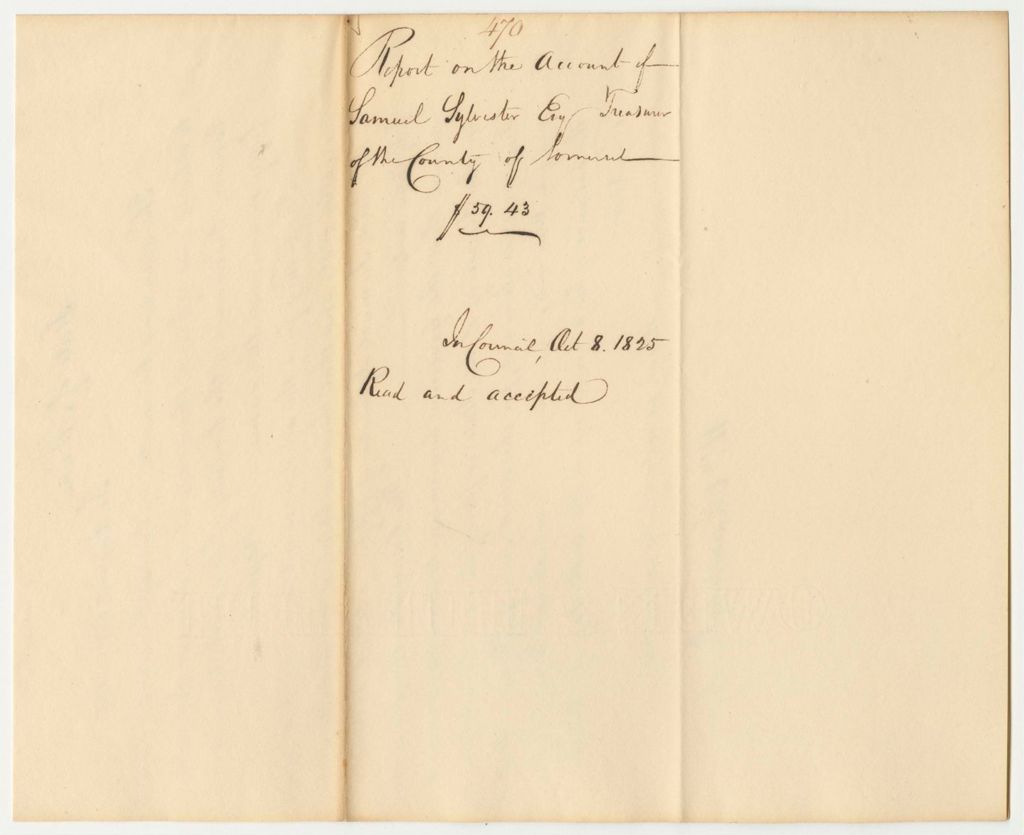 470
Report on the Account of
Samuel Sylvester Esq Treasurer
of the County of Somerset
$59.43
In Council, Oct 8. 1825
Read and accepted